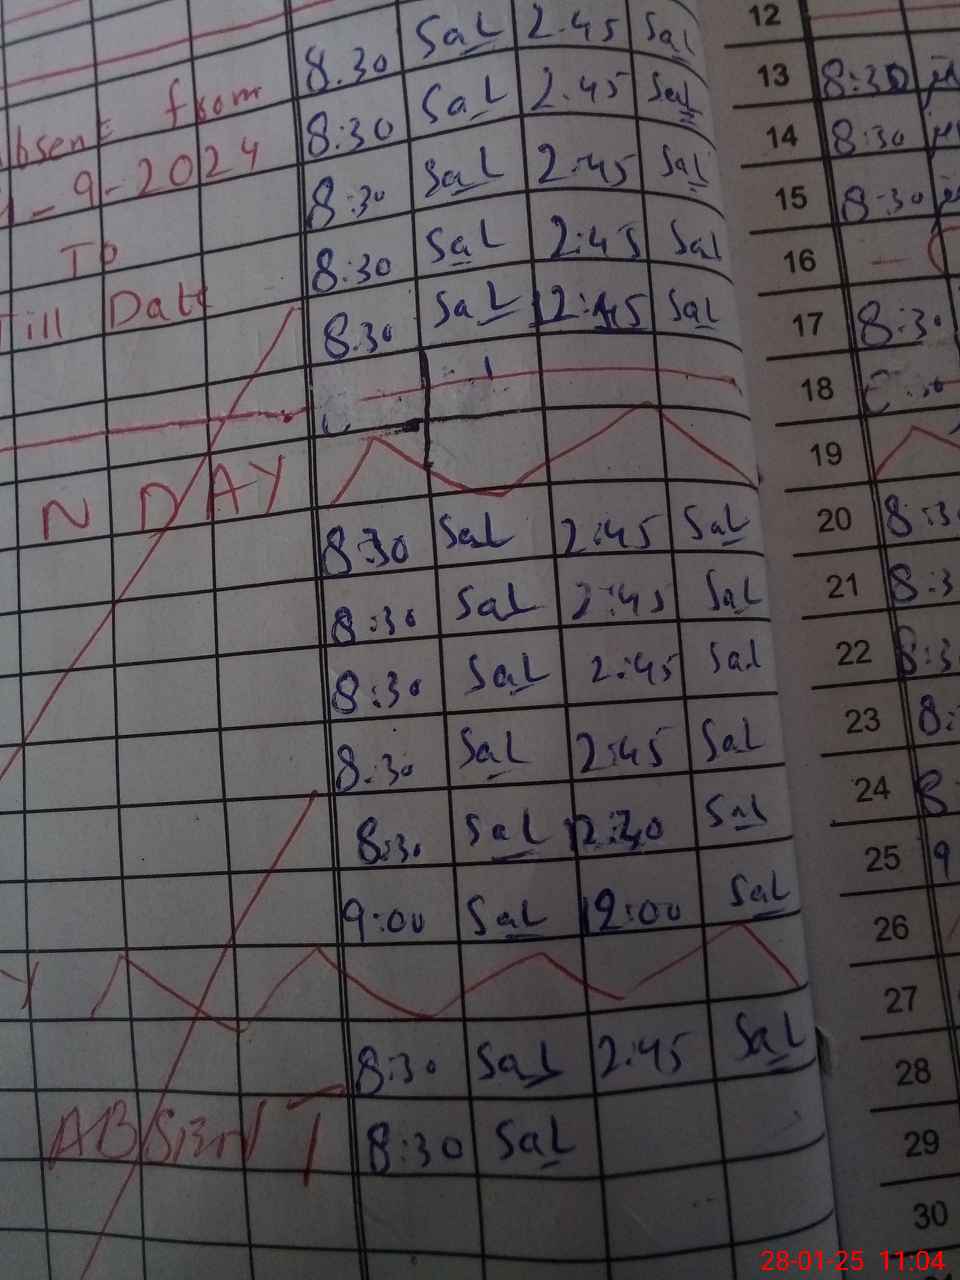 8.30 Sal 2.45 Sal 12
8:30 Sal 2.45 Sal 13 8:30
absent from
8:30 Sal 2:45 Sal 14 8:30
-9-2024
8:30 Sal 2:45 Sal 15 8-30
To
8.30 Sal 12:45 Sal 16
Till Date
17 8:30
18
N DAY
19
8:30 Sal 2:45 Sal 20 8:3
8:30 Sal 2:45 Sal 21 8:3
8:30 Sal 2:45 Sal 22 8:3
8.30 Sal 2:45 Sal 23 8:
8:30 Sal Sal 24 8
9:00 Sal 12:00 Sal 25 9
Y 26
27
8:30 Sal 2:45 Sal 28
ABSENT 8:30 Sal 29
30
28-01-25 11:04